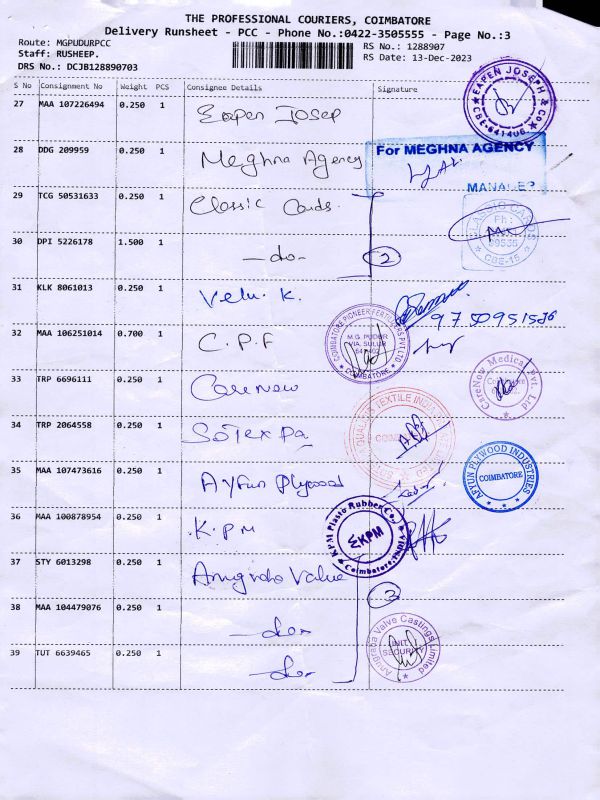 THE PROFESSIONAL COURIERS, COIMBATORE
Delivery Runsheet - PCC - Phone No.:0422-3505555 - Page No.:3
Route: MGPUDURPCC
Staff: RUSHEEP.
DRS No.: DCJB128890703
RS No.: 1288907
RS Date: 13-Dec-2023
S No Consignment No Weight PCS Consignee Details Signature
27 MAA 107226494 0.250 1 Eapen Josep
EAPEN JOSEPH & Co CBE-641406
28 DDG 209959 0.250 1 Meghna Agency
For MEGHNA AGENCY
MANAGER
29 TCG 50531633 0.250 1 Classic Cards.
CLASSIC CARDS Ph: CBE-15
30 DPI 5226178 1.500 1 —do— 2
31 KLK 8061013 0.250 1 Velu. K.
9750951536
32 MAA 106251014 0.700 1 C.P.F
COIMBATORE PIONEER FERTILIZERS PVT LTD M.G. PUDUR VIA. SULUR 641402 COIMBATORE
33 TRP 6696111 0.250 1 Carenow
CareNow Medical Pvt. Ltd
34 TRP 2064558 0.250 1 Sotexpa
TEXTILE INDIA
35 MAA 107473616 0.250 1 Ayfun Plywood
AFYUN PLYWOOD INDUSTRIES COIMBATORE
36 MAA 100878954 0.250 1 K.P.M
KPM Plasto Rubber Co. KPM Coimbatore
37 STY 6013298 0.250 1 Anugraha Valve
38 MAA 104479076 0.250 1 —do— 3
39 TUT 6639465 0.250 1 —do—
Anugraha Valve Castings Limited UNIT SECURITY